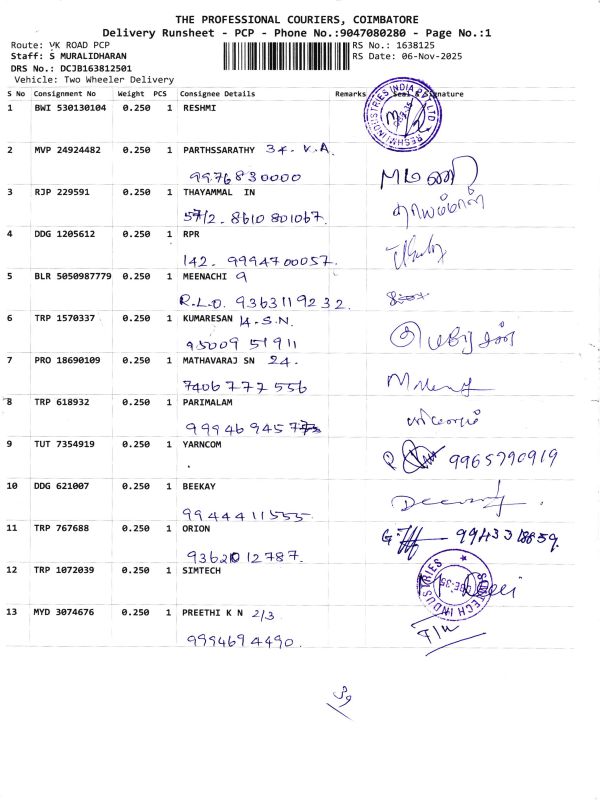 THE PROFESSIONAL COURIERS, COIMBATORE
Delivery Runsheet - PCP - Phone No.:9047080280 - Page No.:1
Route: VK ROAD PCP
RS No.: 1638125
Staff: S MURALIDHARAN
RS Date: 06-Nov-2025
DRS No.: DCJB163812501
Vehicle: Two Wheeler Delivery
S No Consignment No Weight PCS Consignee Details Remarks Seal & Signature
1 BWI 530130104 0.250 1 RESHMI
RESHMI INDUSTRIES INDIA PVT LTD
2 MVP 24924482 0.250 1 PARTHSSARATHY 34. V.A.
9976830000
3 RJP 229591 0.250 1 THAYAMMAL IN
தாயம்மாள்
57/2. 8610 801067.
4 DDG 1205612 0.250 1 RPR
142. 9994700057.
5 BLR 5050987779 0.250 1 MEENACHI 9
R.L.O. 9363119232.
6 TRP 1570337 0.250 1 KUMARESAN 14. S.N.
95009 51911
7 PRO 18690109 0.250 1 MATHAVARAJ SN 24.
7406777556
8 TRP 618932 0.250 1 PARIMALAM
9 TUT 7354919 0.250 1 YARNCOM
9965790919
10 DDG 621007 0.250 1 BEEKAY
99444 11555.
11 TRP 767688 0.250 1 ORION
9362012787.
12 TRP 1072039 0.250 1 SIMTECH
SIMTECH INDUSTRIES
CBE-35
13 MYD 3074676 0.250 1 PREETHI K N 2/3
9994694490.